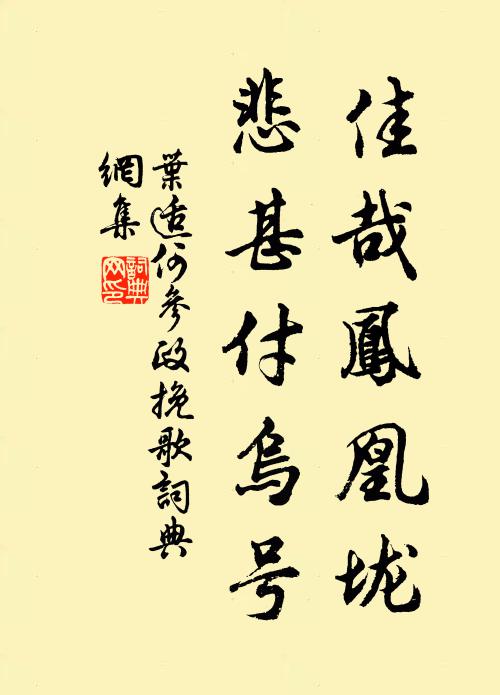 佳哉鳳凰垅
悲甚付烏号
葉適何參政挽歌詞典
網集
詞典網印